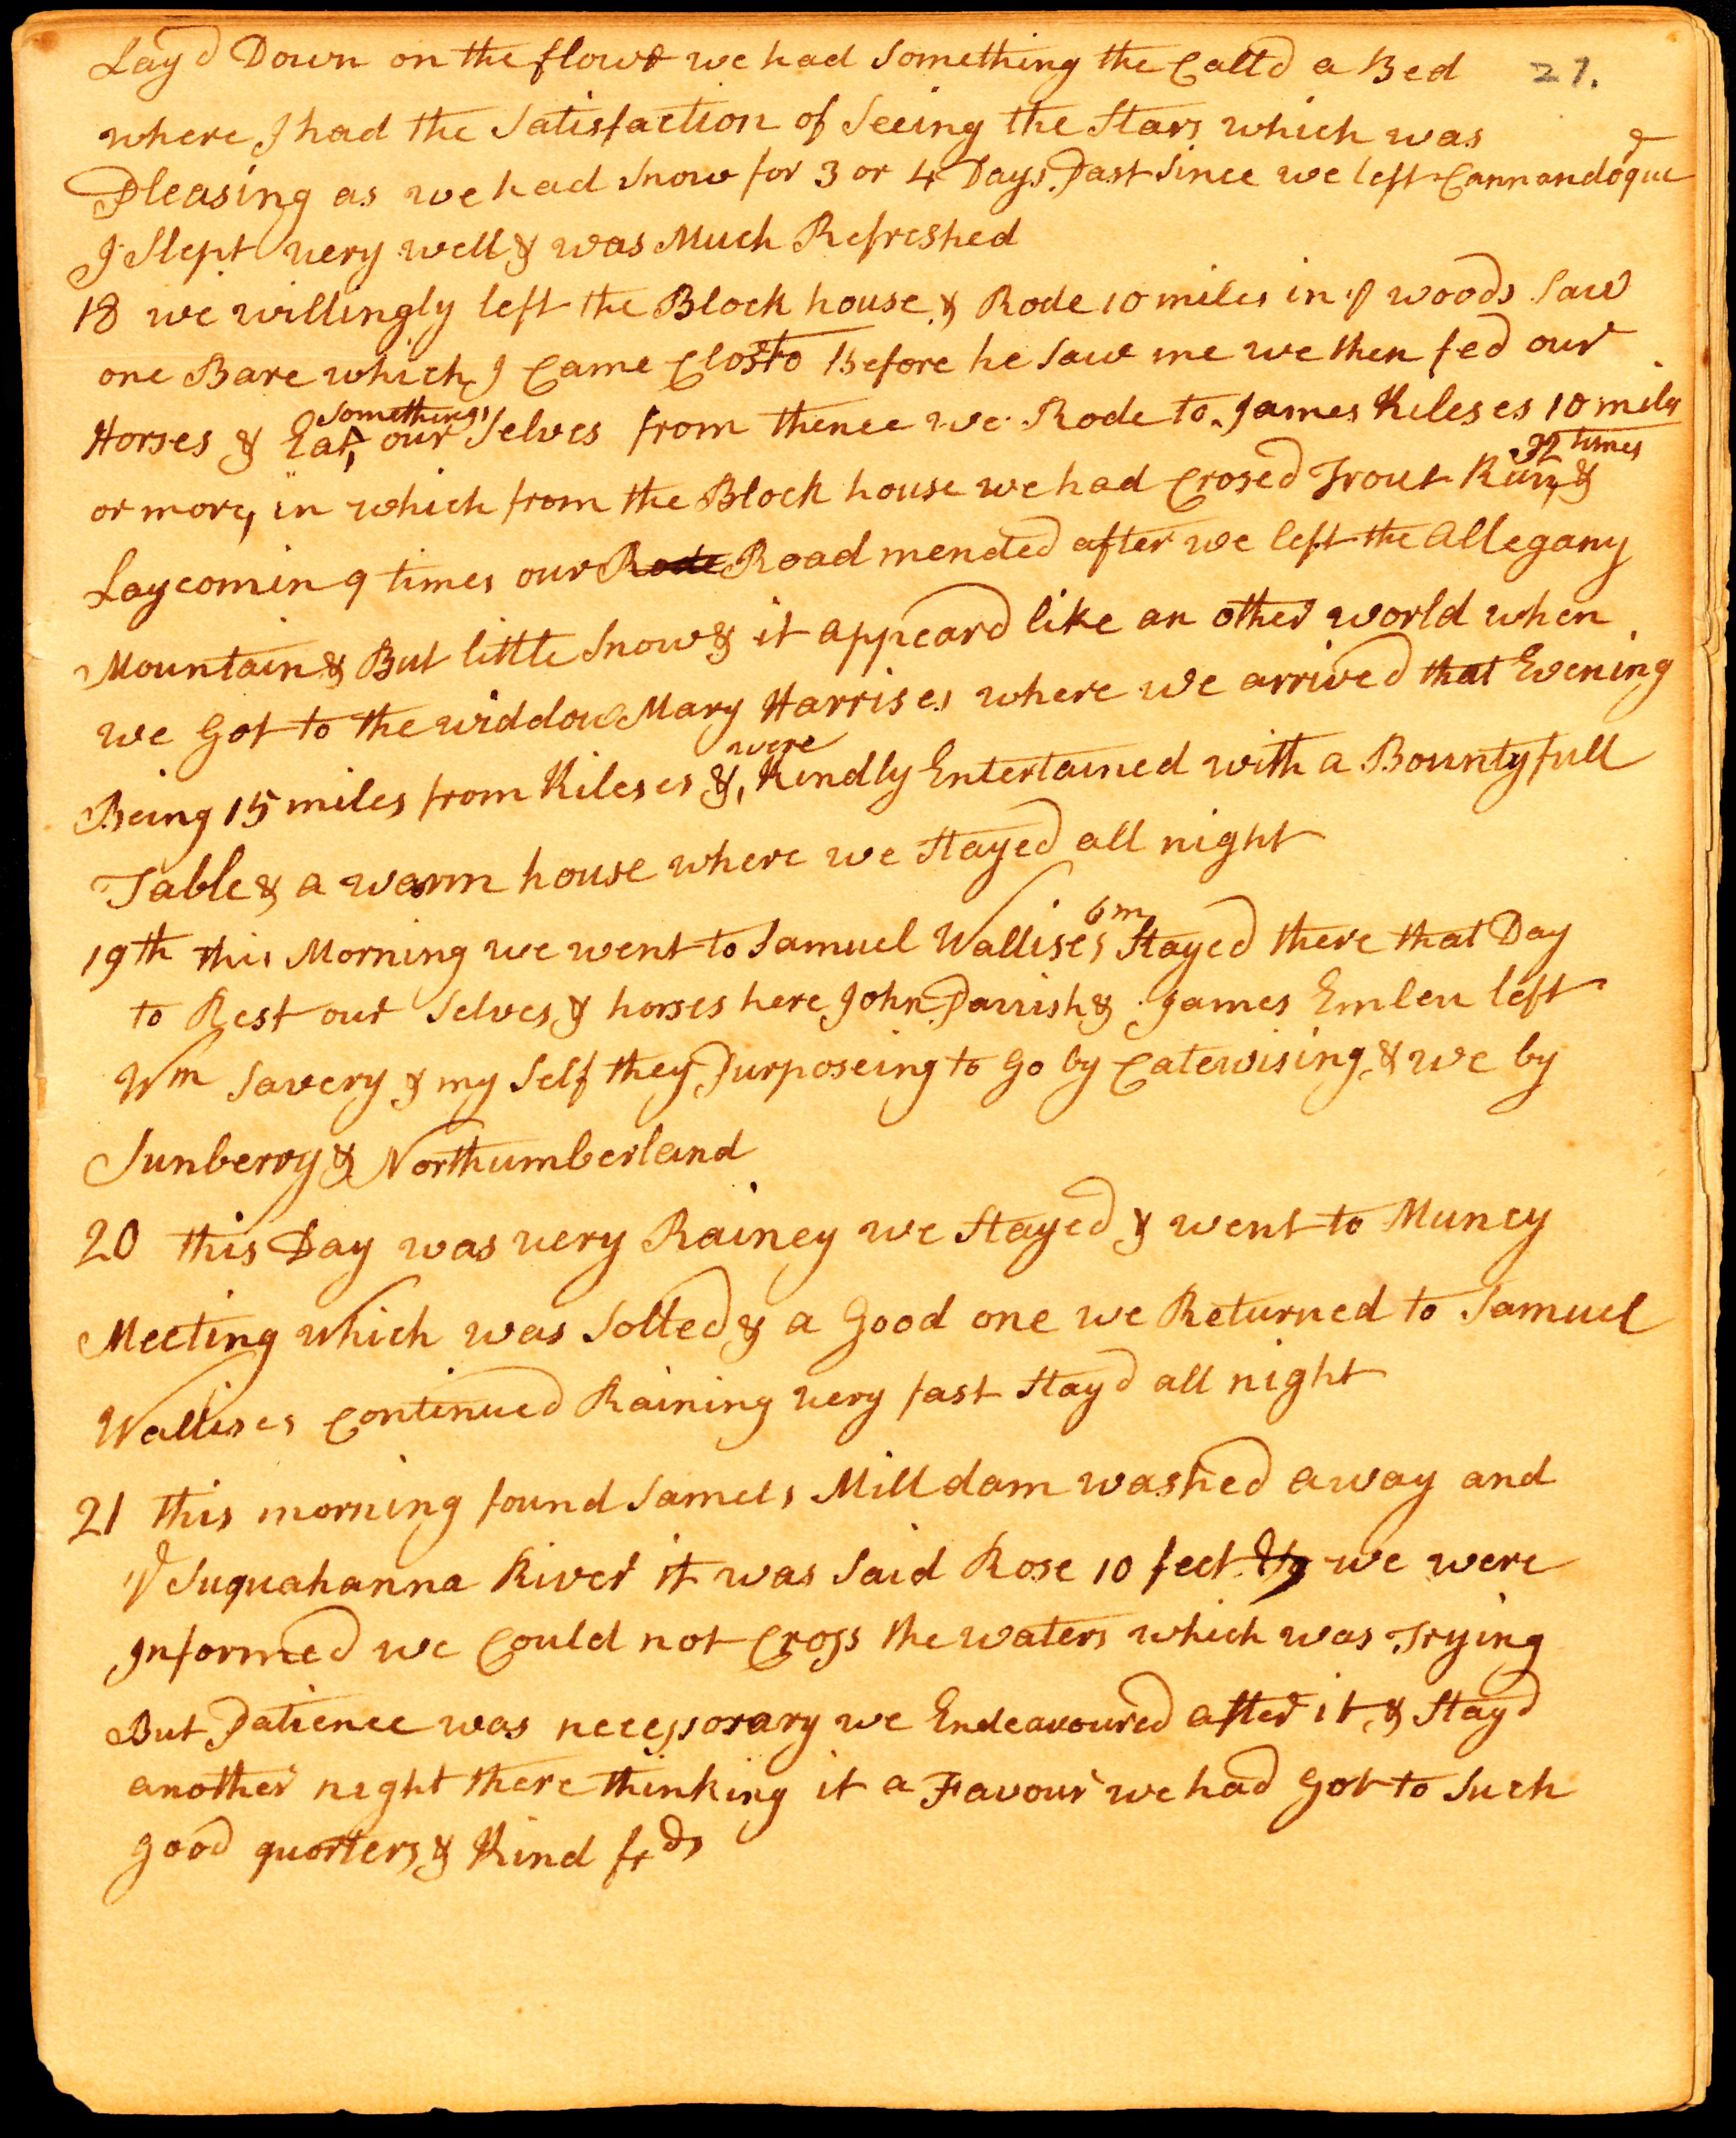 27.
Lay'd Down on the flowr we had Something the Calld a Bed
where I had the Satisfaction of Seeing the Stars which was
Pleasing as we had Snow for 3 or 4 Days Past Since we left Cannandogue
I Slept very well & was Much Refreshed
18 we willingly left the Block house & Rode 10 miles in ye woods Saw
one Bare which I Came Clos to Before he Saw me we then fed our
Horses & Eat something our Selves from thence we Rode to James Kileses 10 miles
or more, in which from the Block house we had Crosed Trout Run 32 times &
Laycomin 9 times our Rode Road mended after we left the Allegany
Mountain & But little Snow & it appeard like an other world when
we Got to the widdow Mary Harrises where we arrived that Evening
Being 15 miles from Kileses & were Kindly Entertained with a Bountyfull
Table & a warm house where we Stayed all night
19th this Morning we went to Samuel Wallises 6m Stayed there that Day
to Rest our Selves & horses here John Parrish & James Emlen left
Wm Savery & my Self they Purposeing to Go by Catewising & we by
Sunberry & Northumberland
20 this Day was very Rainey we Stayed & went to Muncy
Meeting which was Solted & a Good one we Returned to Samuel
Wallises Continued Raining very fast Stay'd all night
21 this morning found Samels Milldam washed away and
ye Suquahanna River it was Said Rose 10 feet we were
Informed we Could not Cross the waters which was Trying
But Patience was necessorary we Endeavoured after it & Stayd
another night there thinking it a Favour we had Got to Such
good quorters & Kind frds